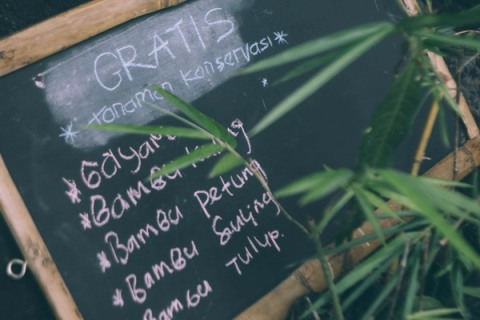 GRATIS
* tanaman konservasi *
* Gayam
* Bambu kuning
* Bambu Petung
* Bambu Suling
Bambu Tulup.